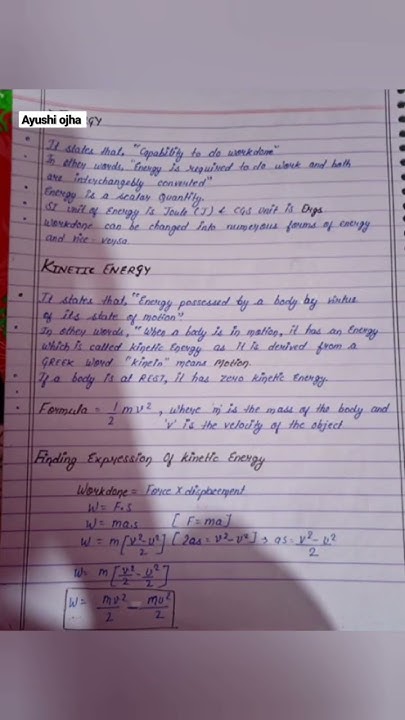 Ayushi ojha
It states that, "Capability to do workdone"
In other words, "Energy is required to do work and both
are interchangebly converted"
Energy is a scalar Quantity.
SI unit of Energy is Joule (J) & CGS unit is Ergs.
Workdone can be changed into numerous forms of energy
and vice-versa.
KINETIC ENERGY
It states that, "Energy possessed by a body by virtue
of its state of motion"
In other words, "When a body is in motion, it has an Energy
which is called kinetic Energy as it is derived from a
GREEK WORD "kinein" means Motion.
If a body is at REST, it has zero kinetic Energy.
Formula = 1/2 mv², where 'm' is the mass of the body and
'v' is the velocity of the object
Finding Expression Of kinetic Energy
Workdone = Force × displacement
W = F.s
W = ma.s [F = ma]
W = m[v²-u²/2] [2as = v²-u²] → as = v²-u²/2
W = m[v²/2 - u²/2]
W = mv²/2 - mu²/2